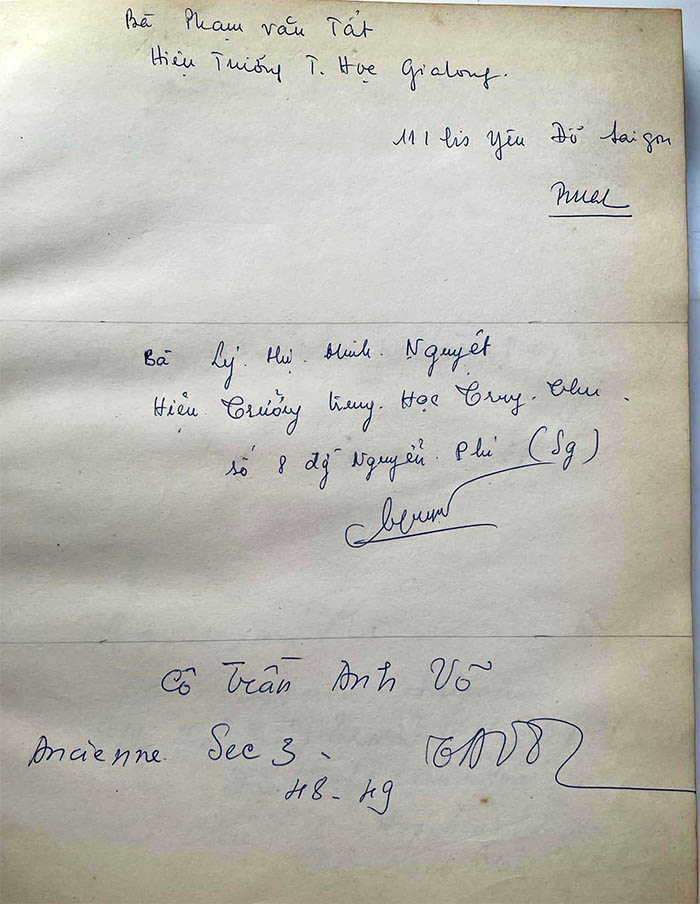 Bà Phạm văn Tất
Hiệu Trưởng T. Học Gialong.
111 bis Yên Đổ Saigon
Bà Lý. Thị. Minh. Nguyệt
Hiệu Trưởng Trung. Học Trưng. Thu.
số 8 Nguyễn. Phi (Sg)
Cô Trần Anh Võ
Ancienne Sec 3 -
48 - 49
TAVõ